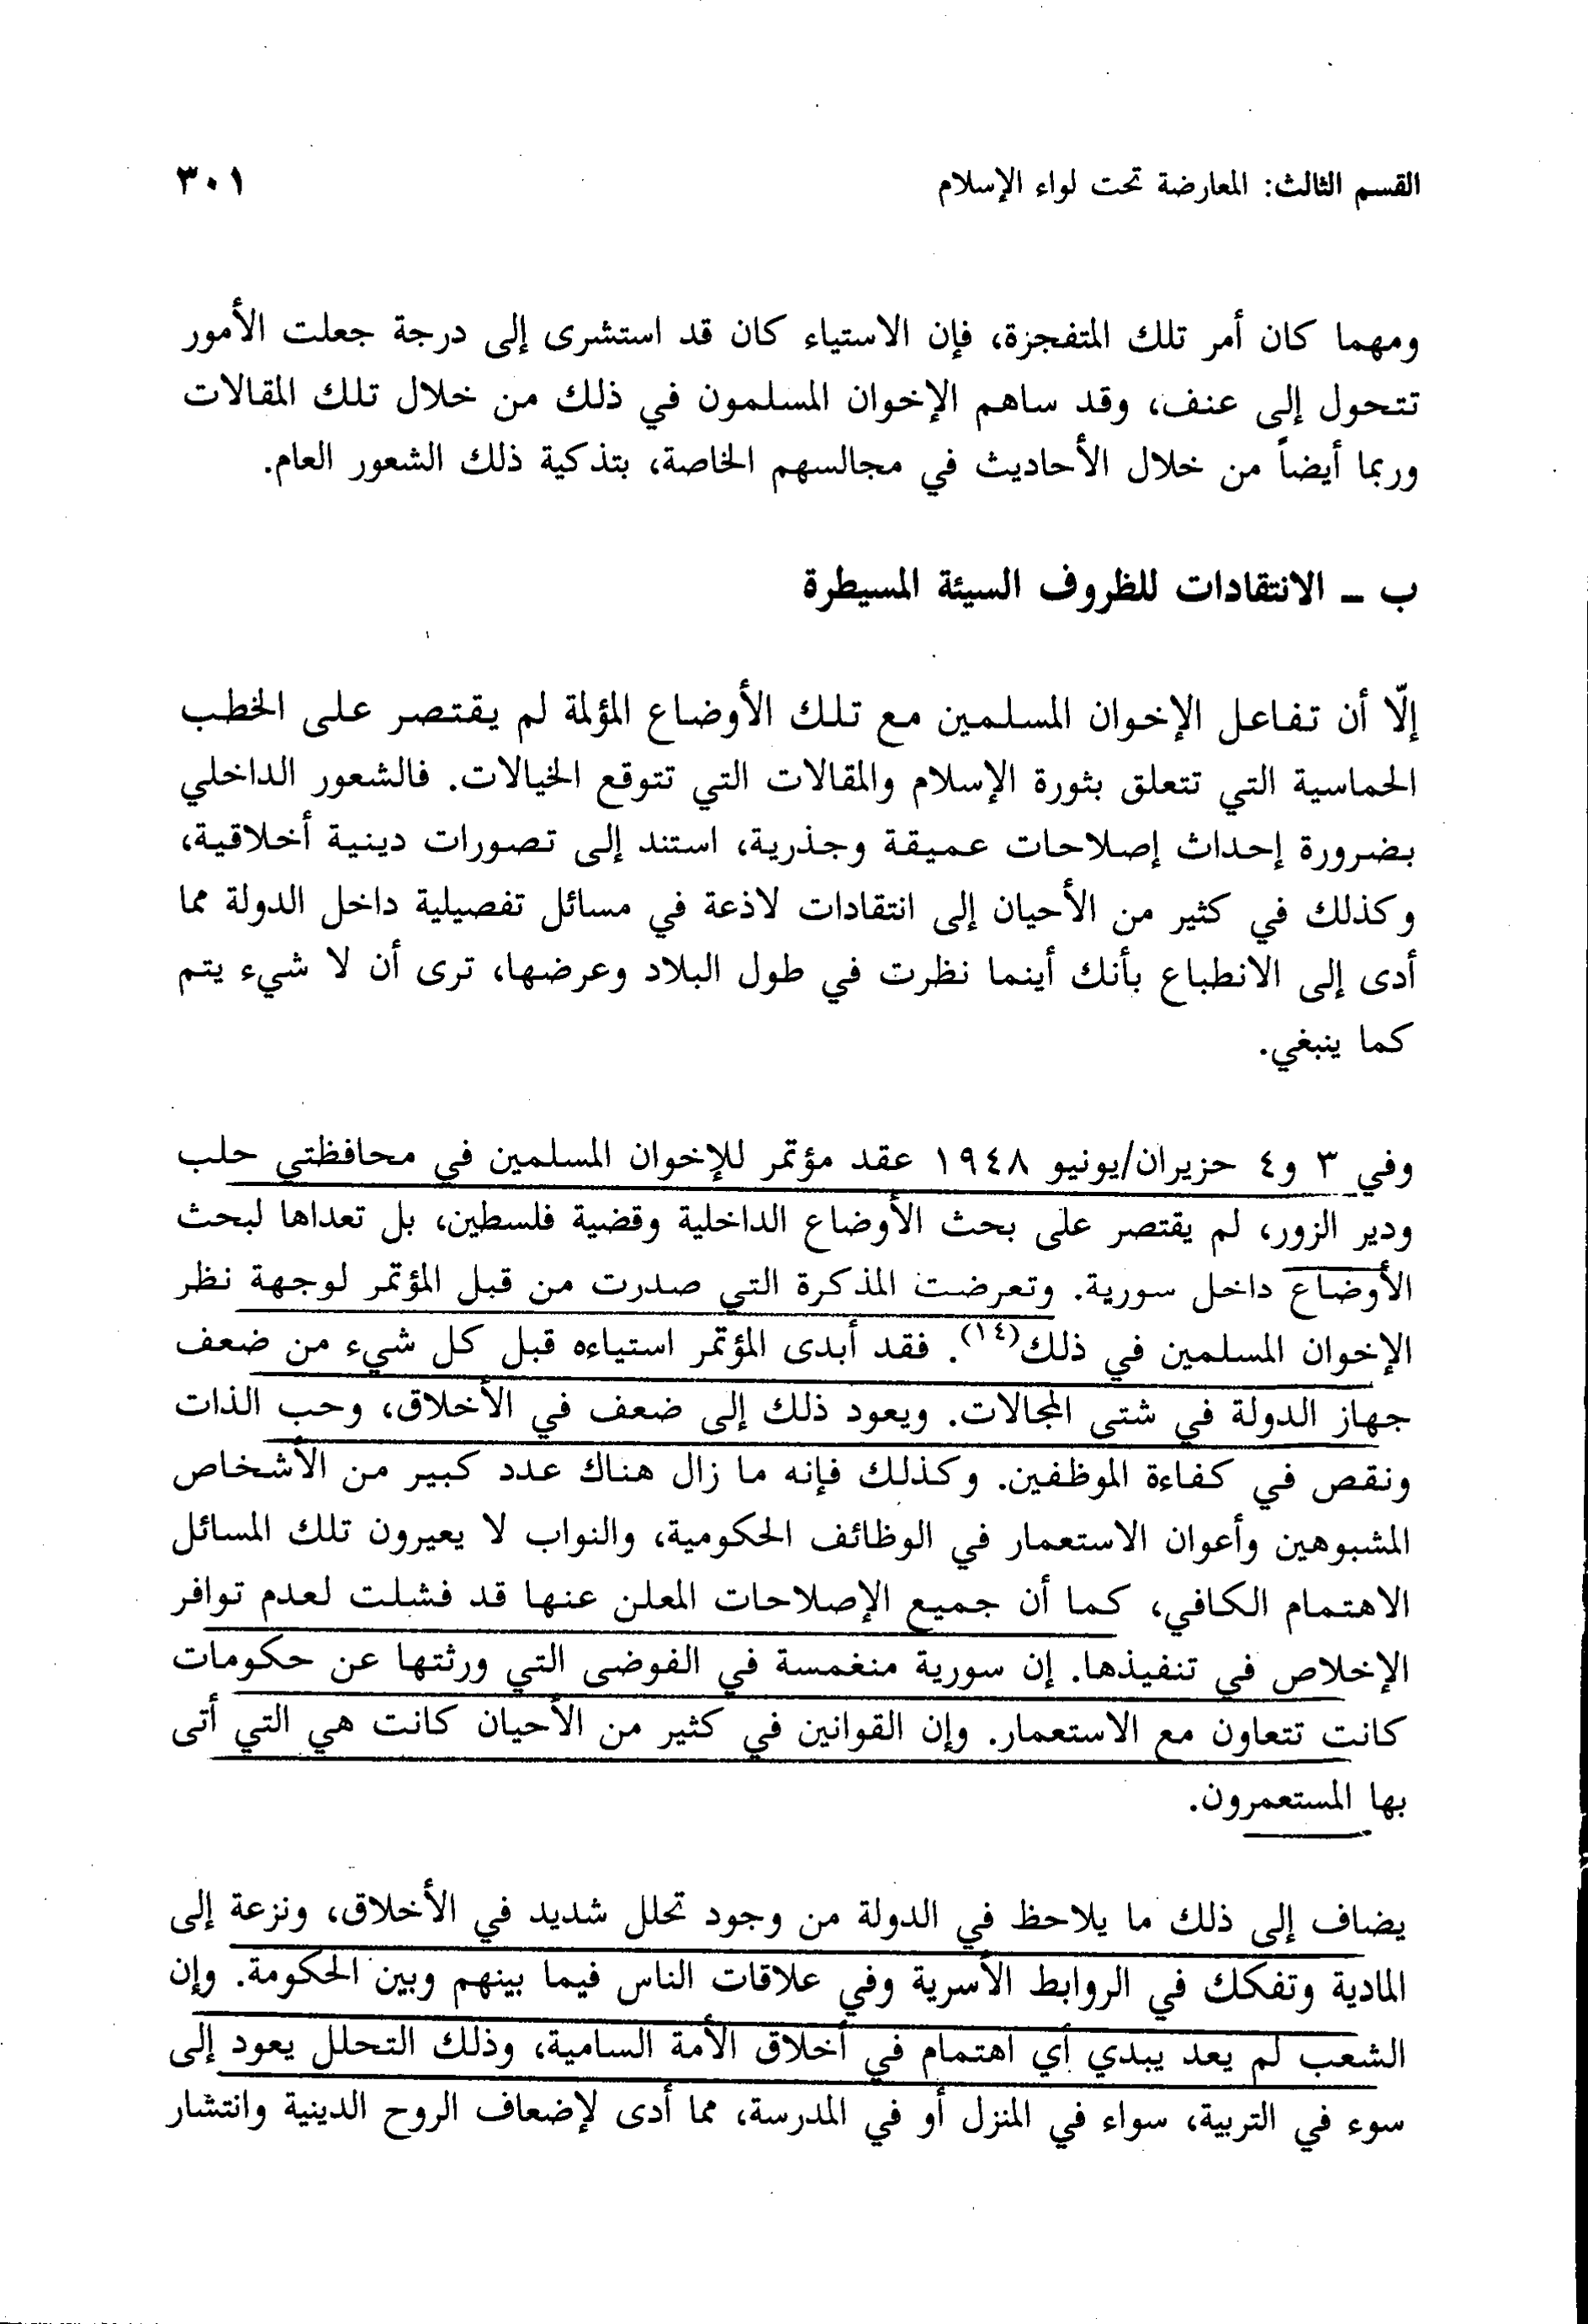 القسم الثالث: المعارضة تحت لواء الإسلام ٣٠١
ومهما كان أمر تلك المتفجزة، فإن الاستياء كان قد استشرى إلى درجة جعلت الأمور
تتحول إلى عنف، وقد ساهم الإخوان المسلمون في ذلك من خلال تلك المقالات
وربما أيضاً من خلال الأحاديث في مجالسهم الخاصة، بتذكية ذلك الشعور العام.
ب ــ الانتقادات للظروف السيئة المسيطرة
إلّا أن تفاعل الإخوان المسلمين مع تلك الأوضاع المؤلمة لم يقتصر على الخطب
الحماسية التي تتعلق بثورة الإسلام والمقالات التي تتوقع الخيالات. فالشعور الداخلي
بضرورة إحداث إصلاحات عميقة وجذرية، استند إلى تصورات دينية أخلاقية،
وكذلك في كثير من الأحيان إلى انتقادات لاذعة في مسائل تفصيلية داخل الدولة مما
أدى إلى الانطباع بأنك أينما نظرت في طول البلاد وعرضها، ترى أن لا شيء يتم
كما ينبغي.
وفي ٣ و٤ حزيران/يونيو ١٩٤٨ عقد مؤتمر للإخوان المسلمين في محافظتي حلب
ودير الزور، لم يقتصر على بحث الأوضاع الداخلية وقضية فلسطين، بل تعداها لبحث
الأوضاع داخل سورية. وتعرضت المذكرة التي صدرت من قبل المؤتمر لوجهة نظر
الإخوان المسلمين في ذلك(١٤). فقد أبدى المؤتمر استياءه قبل كل شيء من ضعف
جهاز الدولة في شتى المجالات. ويعود ذلك إلى ضعف في الأخلاق، وحب الذات
ونقص في كفاءة الموظفين. وكذلك فإنه ما زال هناك عدد كبير من الأشخاص
المشبوهين وأعوان الاستعمار في الوظائف الحكومية، والنواب لا يعيرون تلك المسائل
الاهتمام الكافي، كما أن جميع الإصلاحات المعلن عنها قد فشلت لعدم توافر
الإخلاص في تنفيذها. إن سورية منغمسة في الفوضى التي ورثتها عن حكومات
كانت تتعاون مع الاستعمار. وإن القوانين في كثير من الأحيان كانت هي التي أتى
بها المستعمرون.
يضاف إلى ذلك ما يلاحظ في الدولة من وجود تحلل شديد في الأخلاق، ونزعة إلى
المادية وتفكك في الروابط الأسرية وفي علاقات الناس فيما بينهم وبين الحكومة. وإن
الشعب لم يعد يبدي أي اهتمام في أخلاق الأمة السامية، وذلك التحلل يعود إلى
سوء في التربية، سواء في المنزل أو في المدرسة، مما أدى لإضعاف الروح الدينية وانتشار